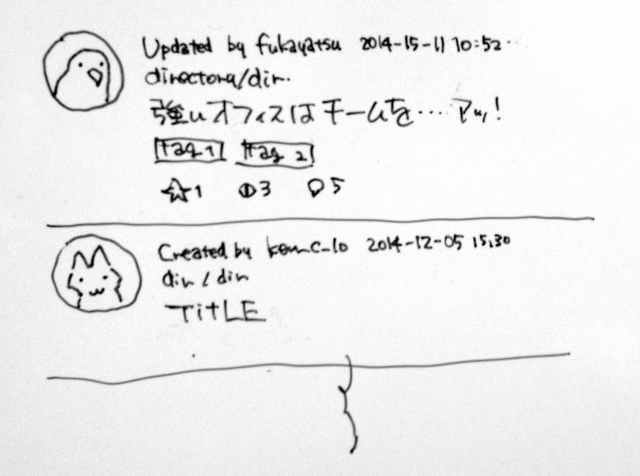 Updated by fukayatsu 2014-15-11 10:52..
directora/dir.
強いオフィスはチームを…アッ!
#tag 1 #tag 2
☆1 3 5
Created by ken_c_lo 2014-12-05 15:30
dir / dir
TitLE